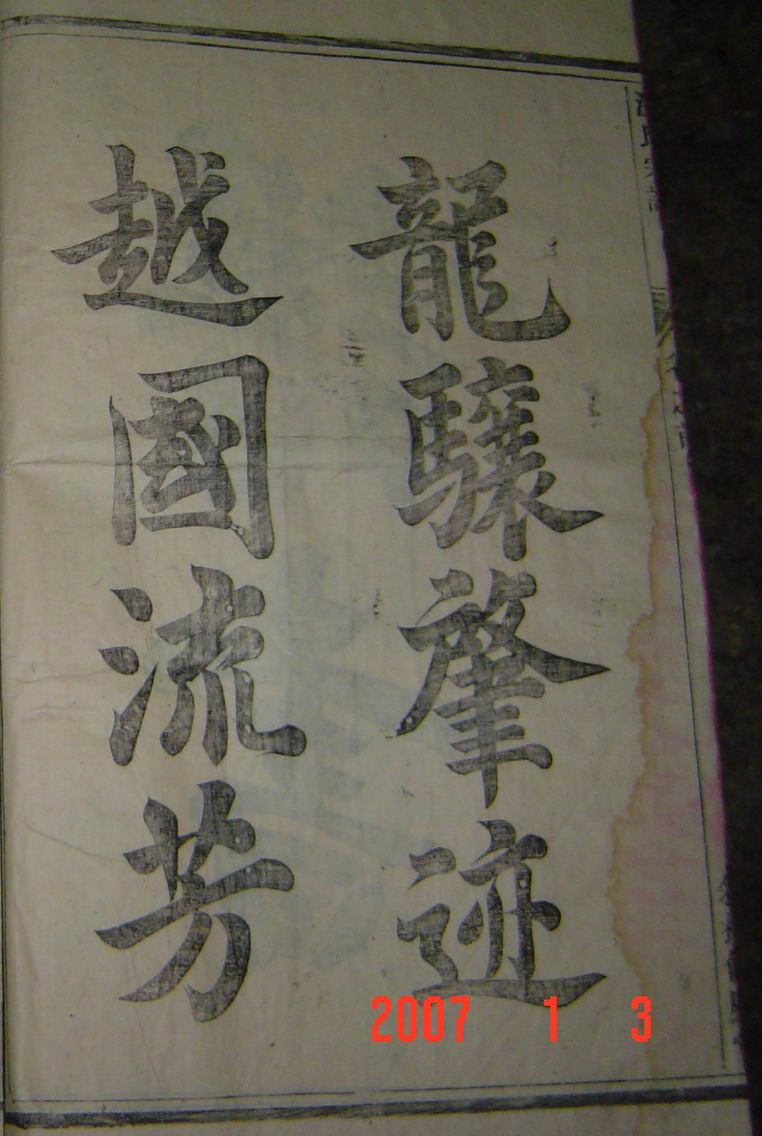 龍驤肇迹
越國流芳
2007 1 3